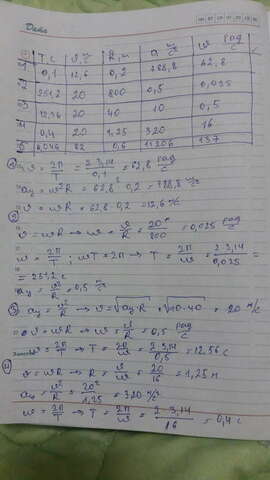 Date
T, c v, м/с R, м a, м/с² ω рад/с
0,1 12,6 0,2 788,8 62,8
251,2 20 800 0,5 0,025
12,56 20 40 10 0,5
0,4 20 1,25 320 16
0,046 82 0,6 11206 137
① ω = 2π/T = 2·3,14/0,1 = 62,8 рад/с
aц = ω²R = 62,8² · 0,2 = 788,8 м/с²
v = ωR = 62,8 · 0,2 = 12,56 м/с
②
v = ωR → ω = v/R = 20/800 = 0,025 рад/с
ω = 2π/T ; ωT = 2π → T = 2π/ω = 2·3,14/0,025 =
= 251,2 c
aц = v²/R = 0,5 м/с²
③ aц = v²/R → v = √aц·R = √10·40 = 20 м/с
v = ωR → ω = v/R = 0,5 рад/с
ω = 2π/T → T = 2π/ω = 2·3,14/0,5 = 12,56 c
④
v = ωR → R = v/ω = 20/16 = 1,25 м
aц = v²/R = 20²/1,25 = 320 м/с²
ω = 2π/T → T = 2π/ω = 2·3,14/16 = 0,4 c